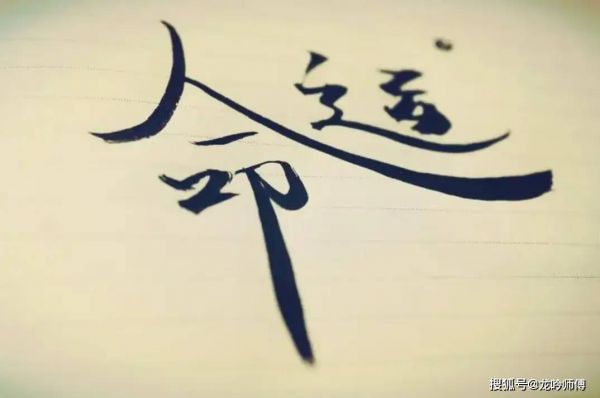 命运
搜狐号@龙吟师傅